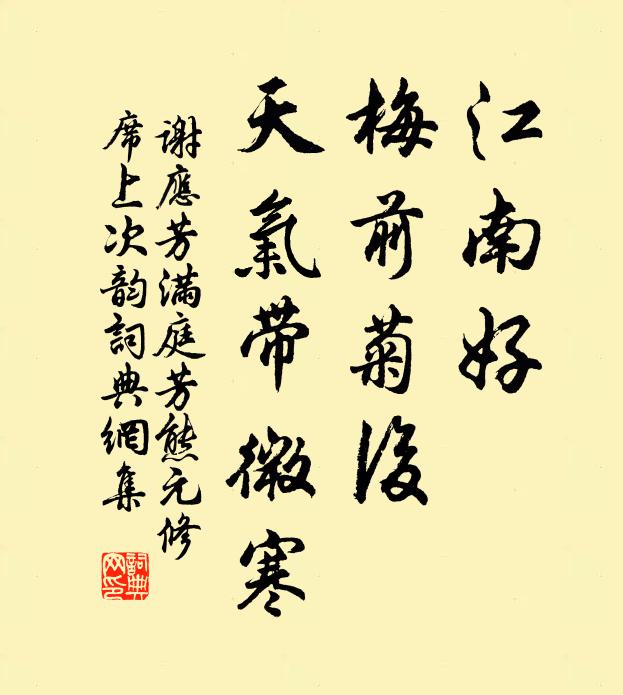 江南好
梅前菊後
天氣帶微寒
謝應芳滿庭芳熊元修
席上次韵詞典網集
詞典
网印